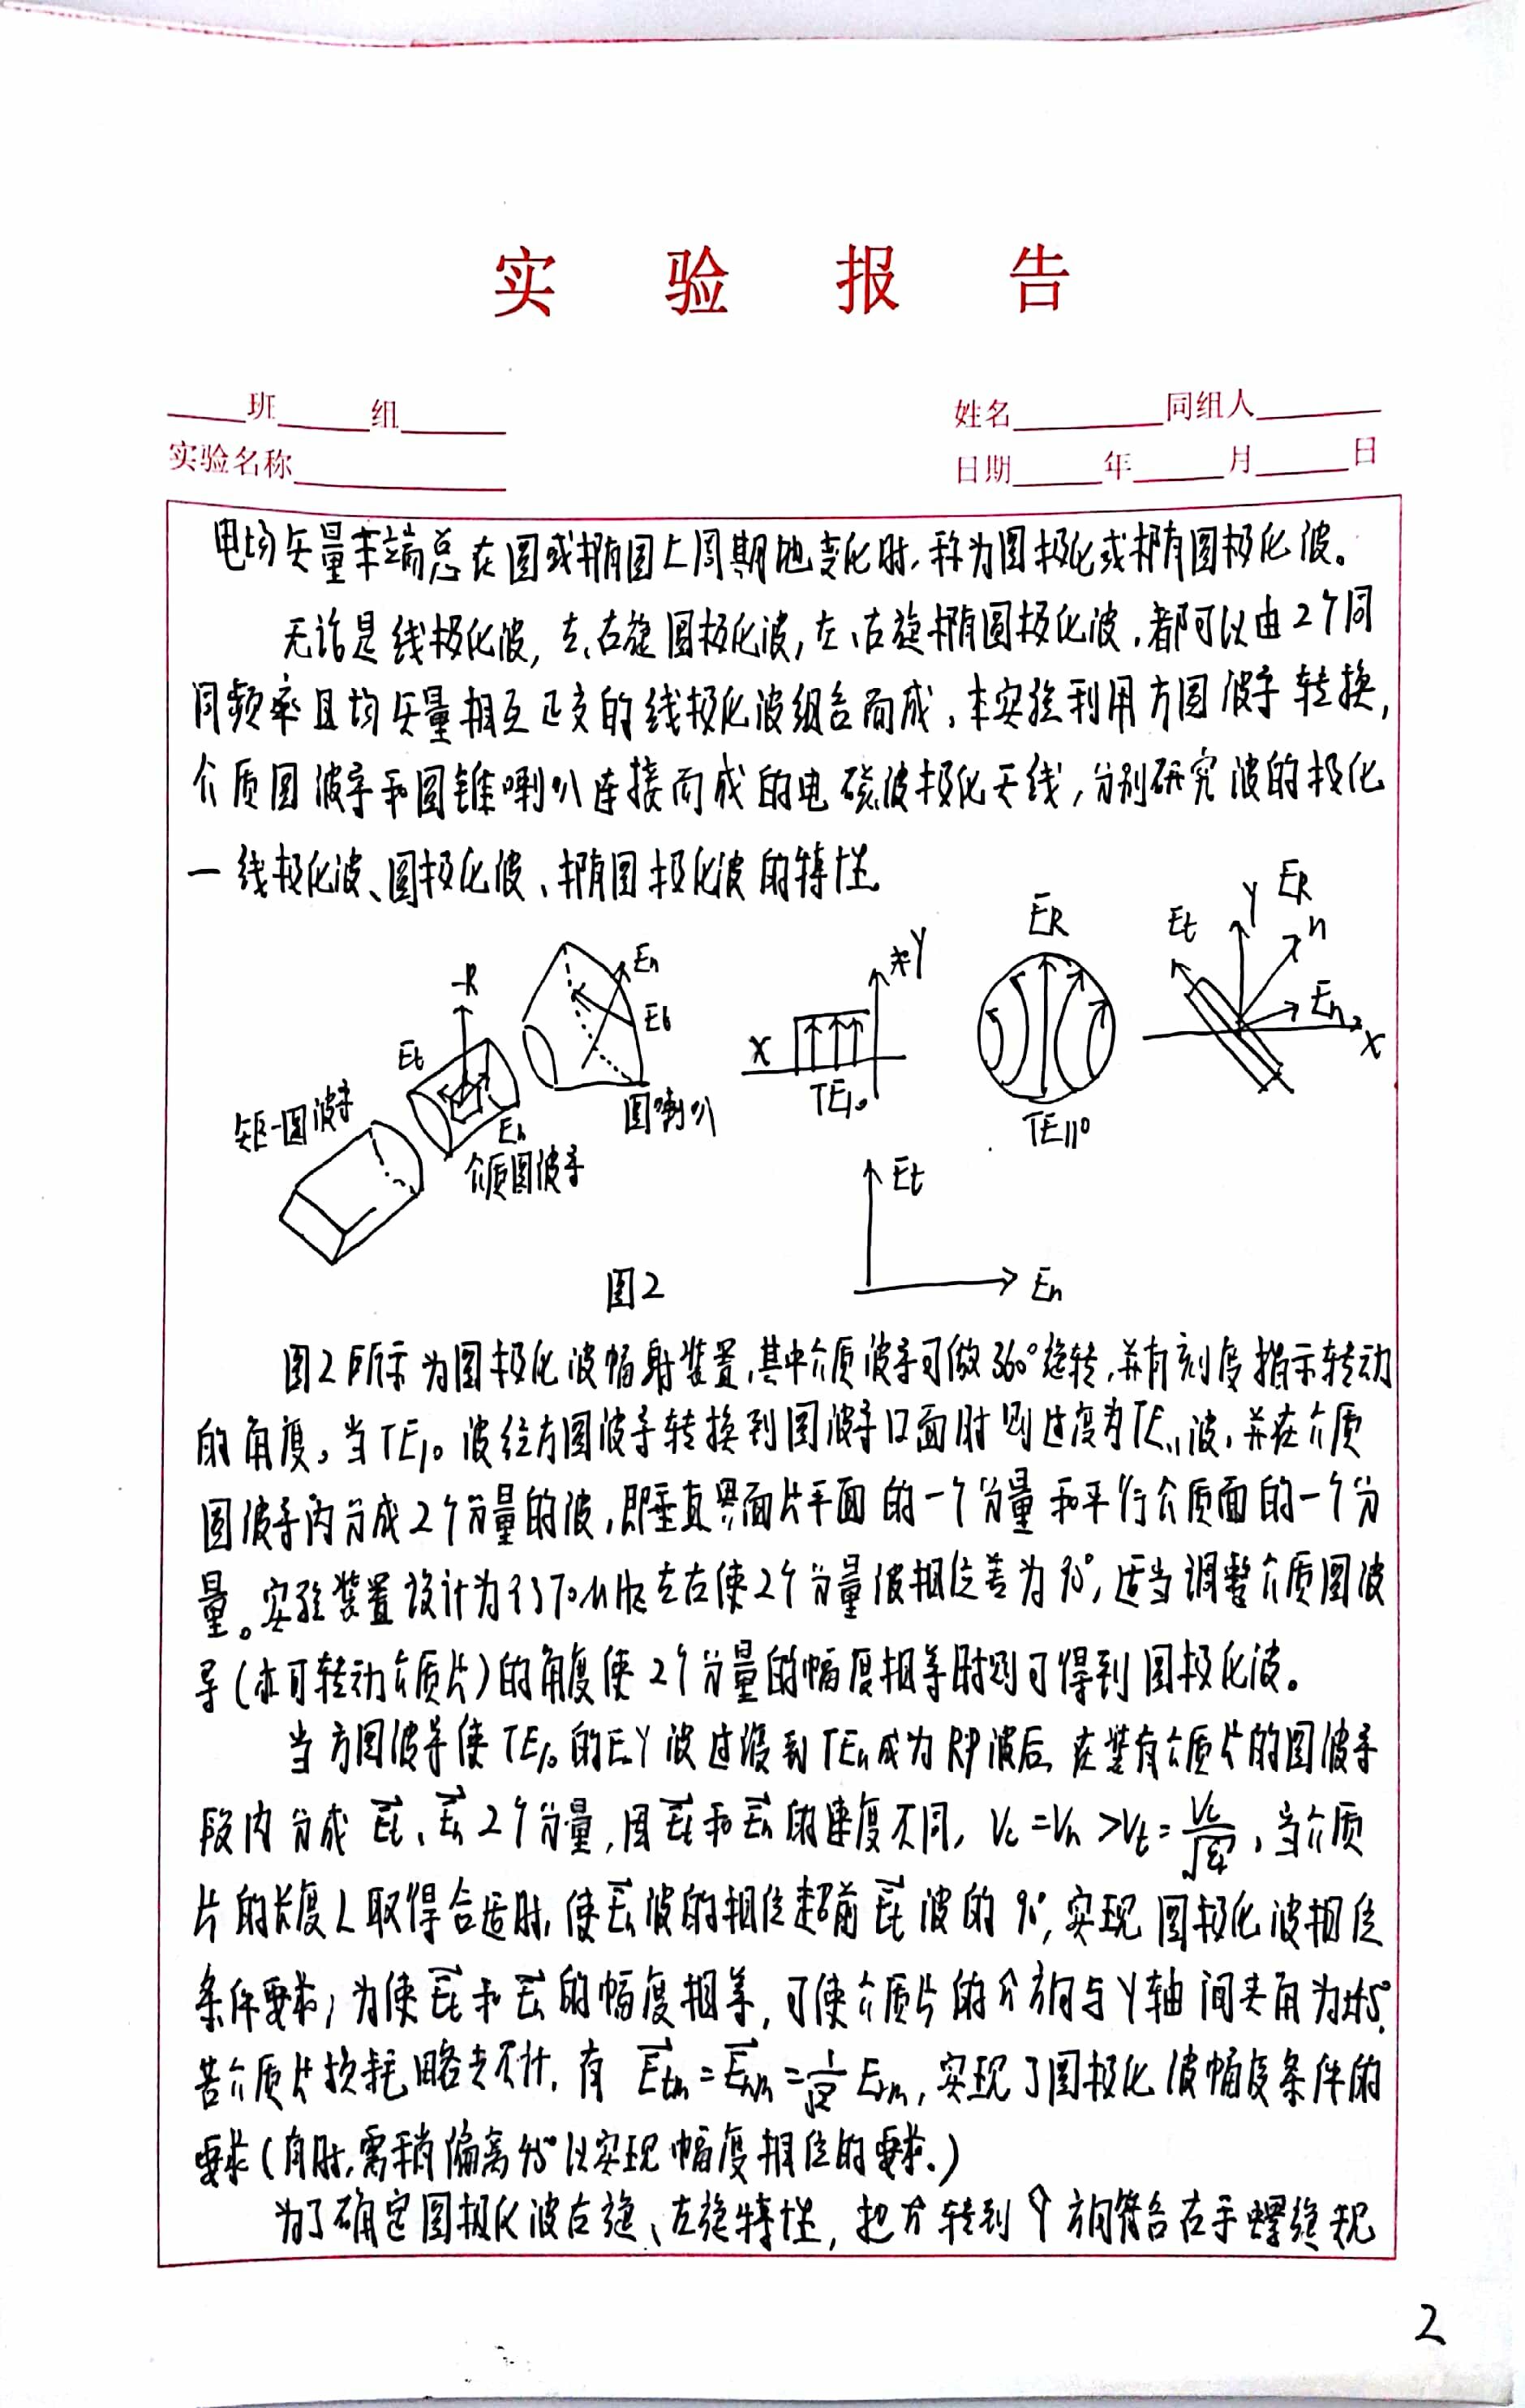 实验报告
____班____组____ 姓名____同组人____
实验名称____ 日期____年____月____日
电场矢量末端总在圆或椭圆上周期地变化时,称为圆极化或椭圆极化波。
无论是线极化波,左、右旋圆极化波,左、右旋椭圆极化波,都可以由2个同
同频率且均矢量相互正交的线极化波组合而成,本实验利用方圆波导转换,
介质圆波导和圆锥喇叭连接而成的电磁波极化天线,分别研究波的极化
一线极化波、圆极化波、椭圆极化波的特性
矩-圆波导
Et
R
En
介质圆波导
En
Et
圆喇叭
X
Y
TE10
ER
TE11°
Et
Y
ER
n
En
X
Et
En
图2
图2所示为圆极化波幅射装置,其中介质波导可做360°旋转,并有刻度指示转动
的角度。当TE10波经方圆波导转换到圆波导口面时则过度为TE11波,并在介质
圆波导内分成2个分量的波,即垂直界面片平面的一个分量和平行介质面的一个分
量。实验装置设计为9370MHz左右使2个分量波相位差为90°,适当调整介质圆波
导(亦可转动介质片)的角度使2个分量的幅度相等时则可得到圆极化波。
当方圆波导使TE10的EY波过渡到TE11成为RP波后 在装有介质片的圆波导
段内分成 Et、En 2个分量,因Et和En的速度不同, Vc=Vn>Vt=Vc/√εr,当介质
片的长度L取得合适时,使En波的相位超前Et波的90°,实现圆极化波相位
条件要求;为使Et和En的幅度相等,可使介质片的介方向与Y轴间夹角为±45°,
若介质片损耗略去不计,有 Etm=Enm=1/√2 Erm,实现了圆极化波幅度条件的
要求(有时,需稍偏离45°以实现幅度相位的要求.)
为了确定圆极化波右旋、左旋特性,把介转到Y方向符合右手螺旋规
2